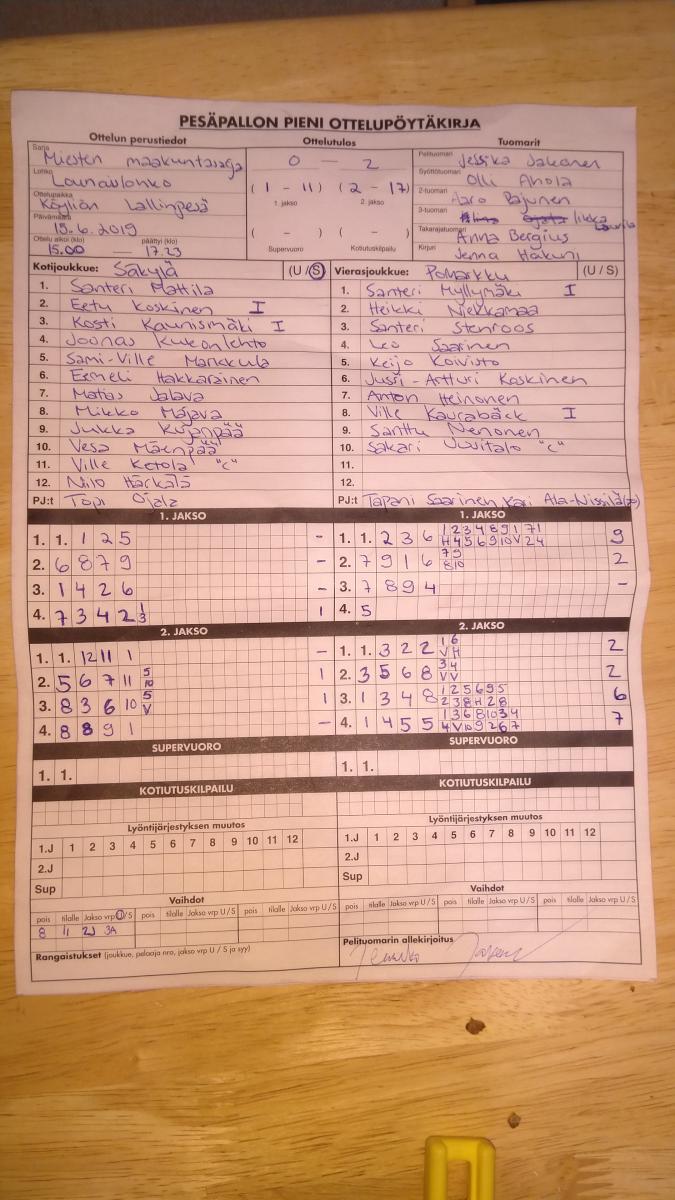 PESÄPALLON PIENI OTTELUPÖYTÄKIRJA
Ottelun perustiedot
Ottelutulos
Tuomarit
Sarja Miesten maakuntasarja
Lohko Lounaislohko
Ottelupaikka Köyliön Lallinpesä
Päivämäärä 15.6.2019
Ottelu alkoi (klo) päättyi (klo)
15.00 — 17.23
0 — 2
(1 - 11) (2 - 17)
1. jakso 2. jakso
( - ) ( - )
Supervuoro Kotiutuskilpailu
Pelituomari Jessika Jakonen
Syöttötuomari Olli Ahola
2-tuomari Aaro Pajunen
3-tuomari Iikka
Takarajatuomari Anna Bergius
Kirjuri Jenna Hakuni
Kotijoukkue: Säkylä (U/S)
1. Santeri Mattila
2. Eetu Koskinen I
3. Kosti Kaunismäki I
4. Joonas Kukonlehto
5. Sami-Ville Markkula
6. Eemeli Hakkarainen
7. Matias Jalava
8. Mikko Majava
9. Jukka Kujanpää
10. Vesa Mäenpää
11. Ville Ketola "c"
12. Niilo Härkälä
PJ:t Topi Ojala
Vierasjoukkue: Pomarkku (U / S)
1. Santeri Myllymäki I
2. Heikki Niekkamaa
3. Santeri Stenroos
4. Leo Saarinen
5. Keijo Koivisto
6. Jussi-Artturi Koskinen
7. Anton Heinonen
8. Ville Kaurabäck I
9. Santtu Nenonen
10. Sakari Uusitalo "c"
11.
12.
PJ:t Tapani Saarinen, Kari Ala-Nissilä
1. JAKSO
1. 1. 1 2 5 -
2. 6 8 7 9 -
3. 1 4 2 6 -
4. 7 3 4 2 1 3 1
1. JAKSO
1 2 3 4 8 9 1 7 1
1. 1. 2 3 6 H 4 5 6 9 10 V 2 4 9
2. 7 9 1 6 7 9 8 10 2
3. 7 8 9 4 -
4. 5
2. JAKSO
1. 1. 12 11 1 -
2. 5 6 7 11 5 10 1
3. 8 3 6 10 5 V 1
4. 8 8 9 1 -
2. JAKSO
1. 1. 3 2 2 1 6 V H 2
2. 3 5 6 8 3 4 V V 2
3. 1 3 4 8 1 2 5 6 9 5 2 3 8 H 2 8 6
4. 1 4 5 5 1 3 6 8 10 3 4 4 V 10 9 2 6 7 7
SUPERVUORO
1. 1.
SUPERVUORO
1. 1.
KOTIUTUSKILPAILU
KOTIUTUSKILPAILU
Lyöntijärjestyksen muutos
1.J 1 2 3 4 5 6 7 8 9 10 11 12
2.J
Sup
Lyöntijärjestyksen muutos
1.J 1 2 3 4 5 6 7 8 9 10 11 12
2.J
Sup
Vaihdot
pois tilalle Jakso vrp U/S pois tilalle Jakso vrp U/S pois tilalle Jakso vrp U/S
8 11 2J 3A
Vaihdot
pois tilalle Jakso vrp U/S pois tilalle Jakso vrp U/S pois tilalle Jakso vrp U/S
Rangaistukset (joukkue, pelaaja nro, jakso vrp U / S ja syy)
Pelituomarin allekirjoitus